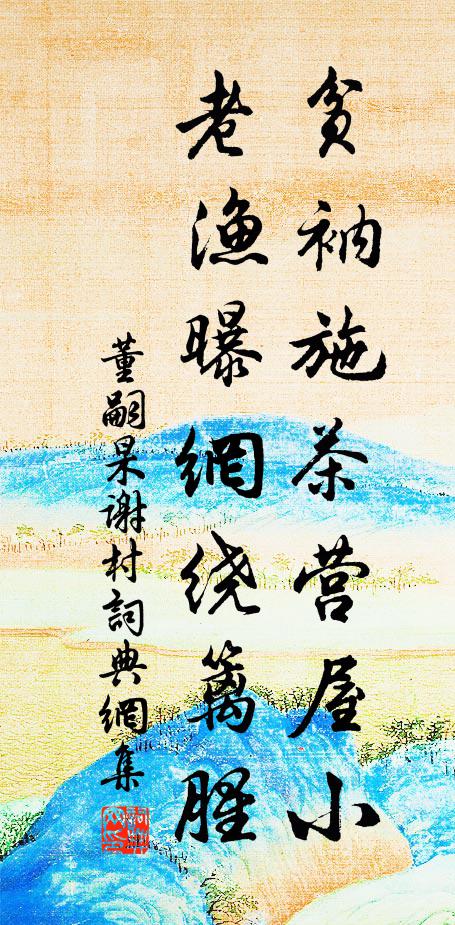 貧衲施茶营屋小
老漁曝網绕篱腥
董嗣杲谢村詞典網集